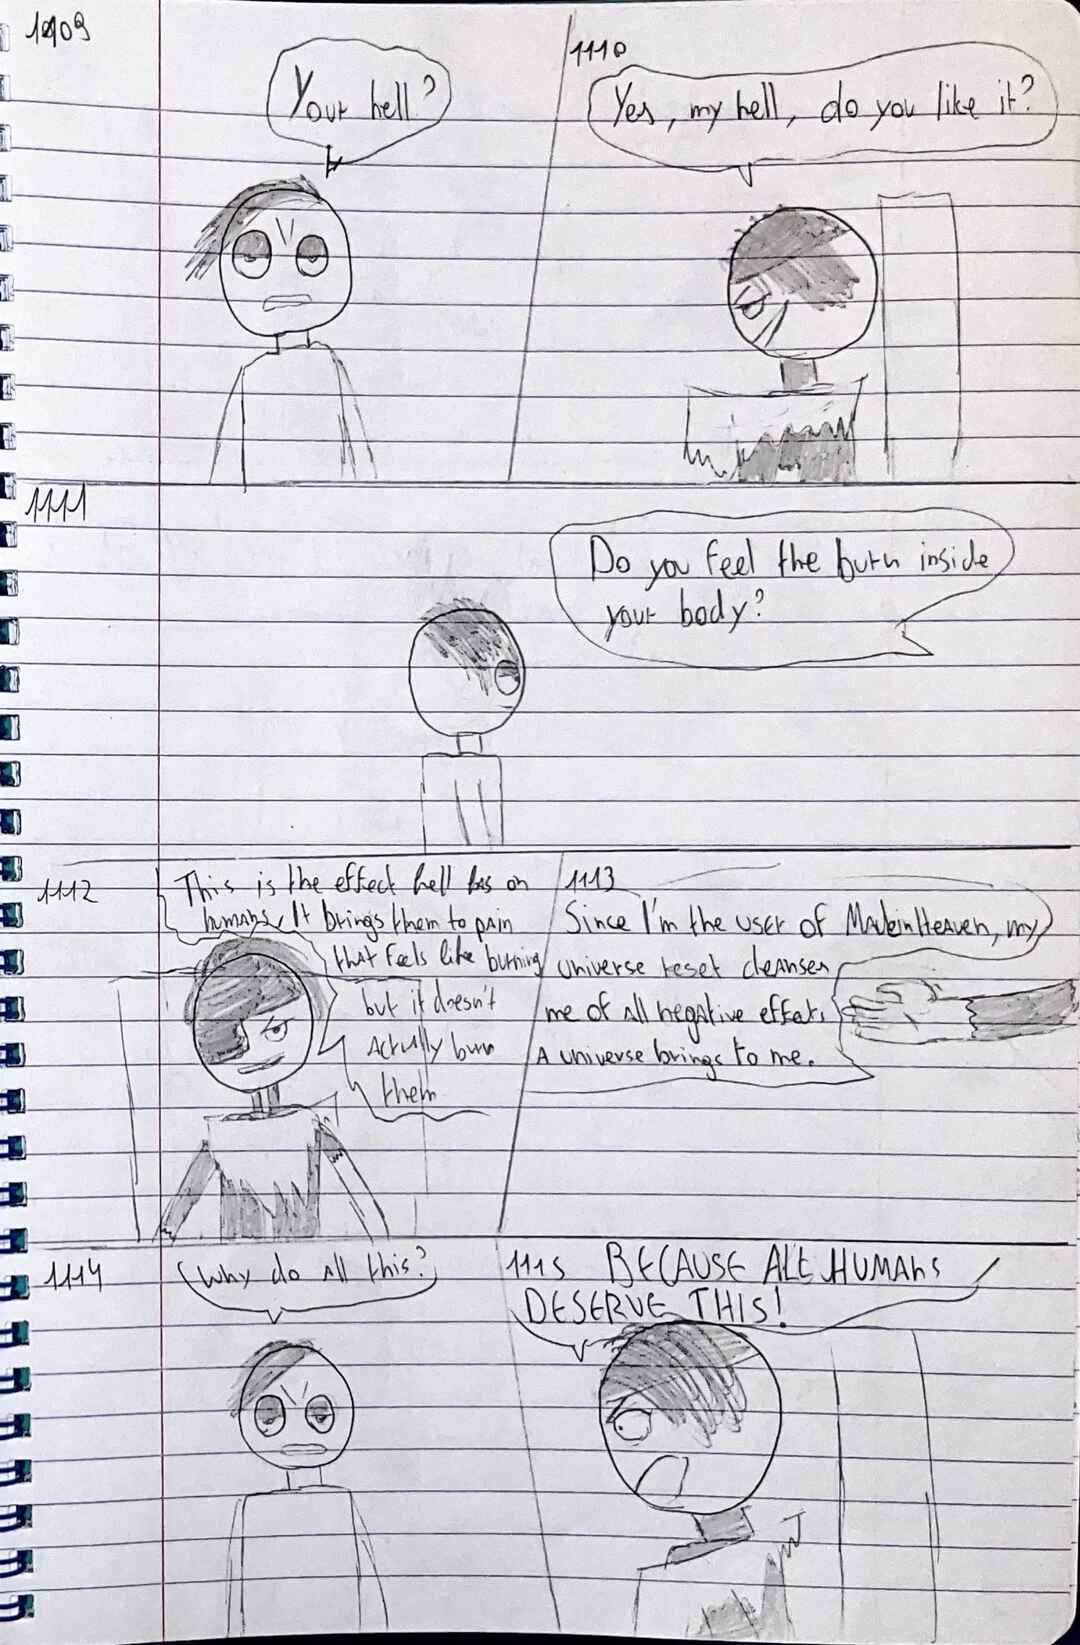 1109
Your hell?
1110
Yes, my hell, do you like it?
1111
Do you feel the burn inside
your body?
1112
This is the effect hell has on
humans. It brings them to pain
that feels like burning
but it doesn't
actually burn
them
1113
Since I'm the user of Made in Heaven, my
universe reset cleanses
me of all negative effects
a universe brings to me.
1114
Why do all this?
1115
BECAUSE ALL HUMANS
DESERVE THIS!